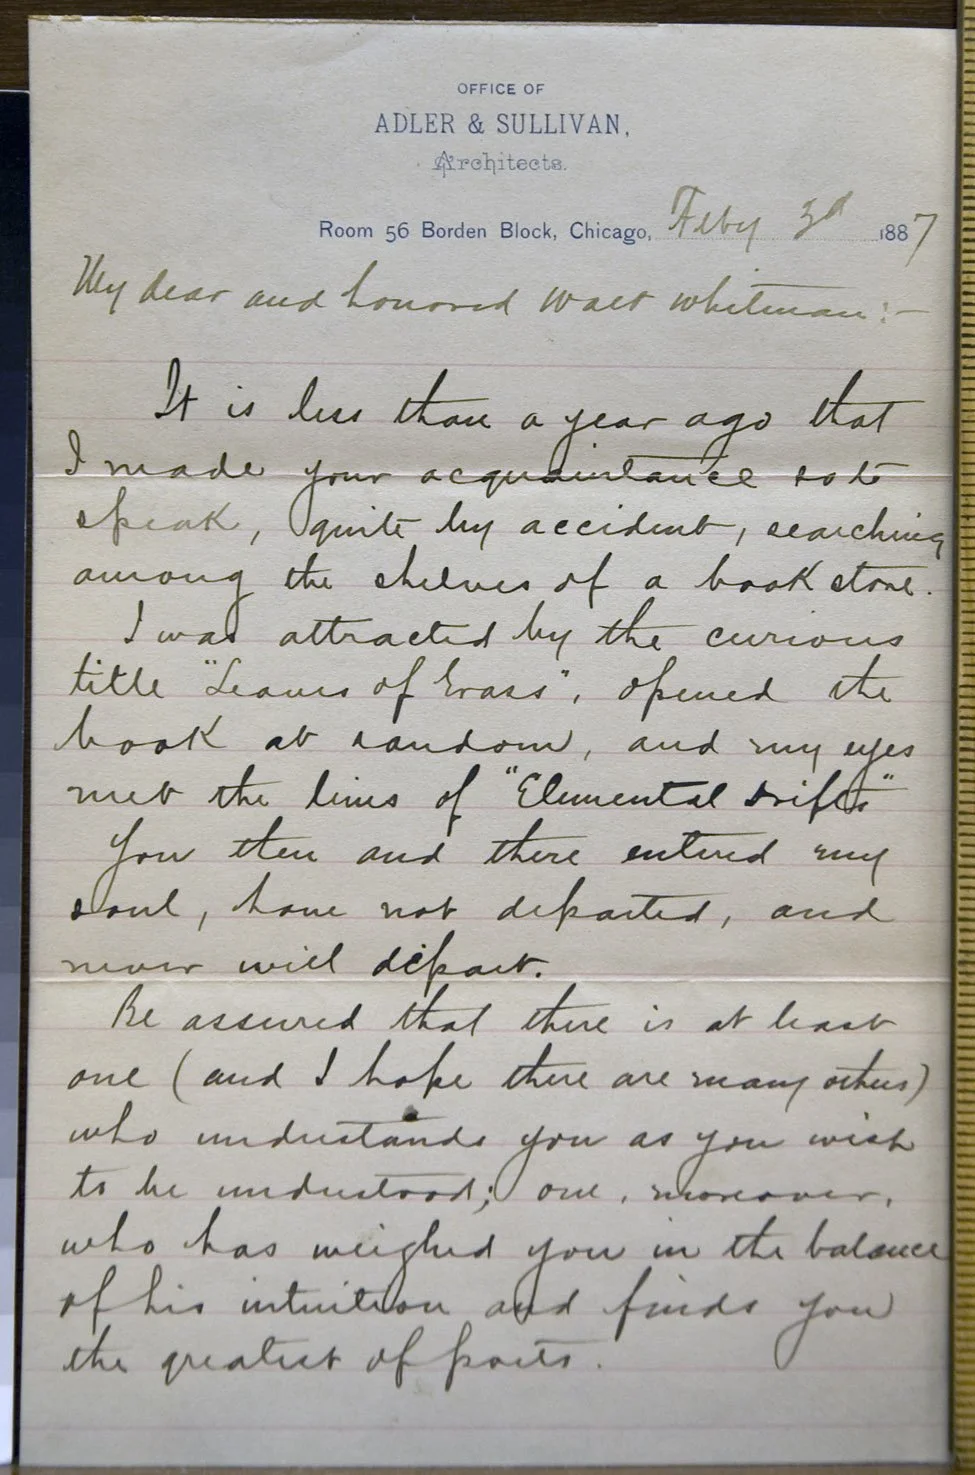 OFFICE OF
ADLER & SULLIVAN,
Architects.
Room 56 Borden Block, Chicago, Feby 3d 1887
My dear and honored Walt Whitman:—
It is less than a year ago that
I made your acquaintance so to
speak, quite by accident, searching
among the shelves of a book store.
I was attracted by the curious
title "Leaves of Grass", opened the
book at random, and my eyes
met the lines of "Elemental Drifts"
You then and there entered my
soul, have not departed, and
never will depart.
Be assured that there is at least
one (and I hope there are many others)
who understands you as you wish
to be understood; one, moreover,
who has weighed you in the balance
of his intuition and finds you
the greatest of poets.